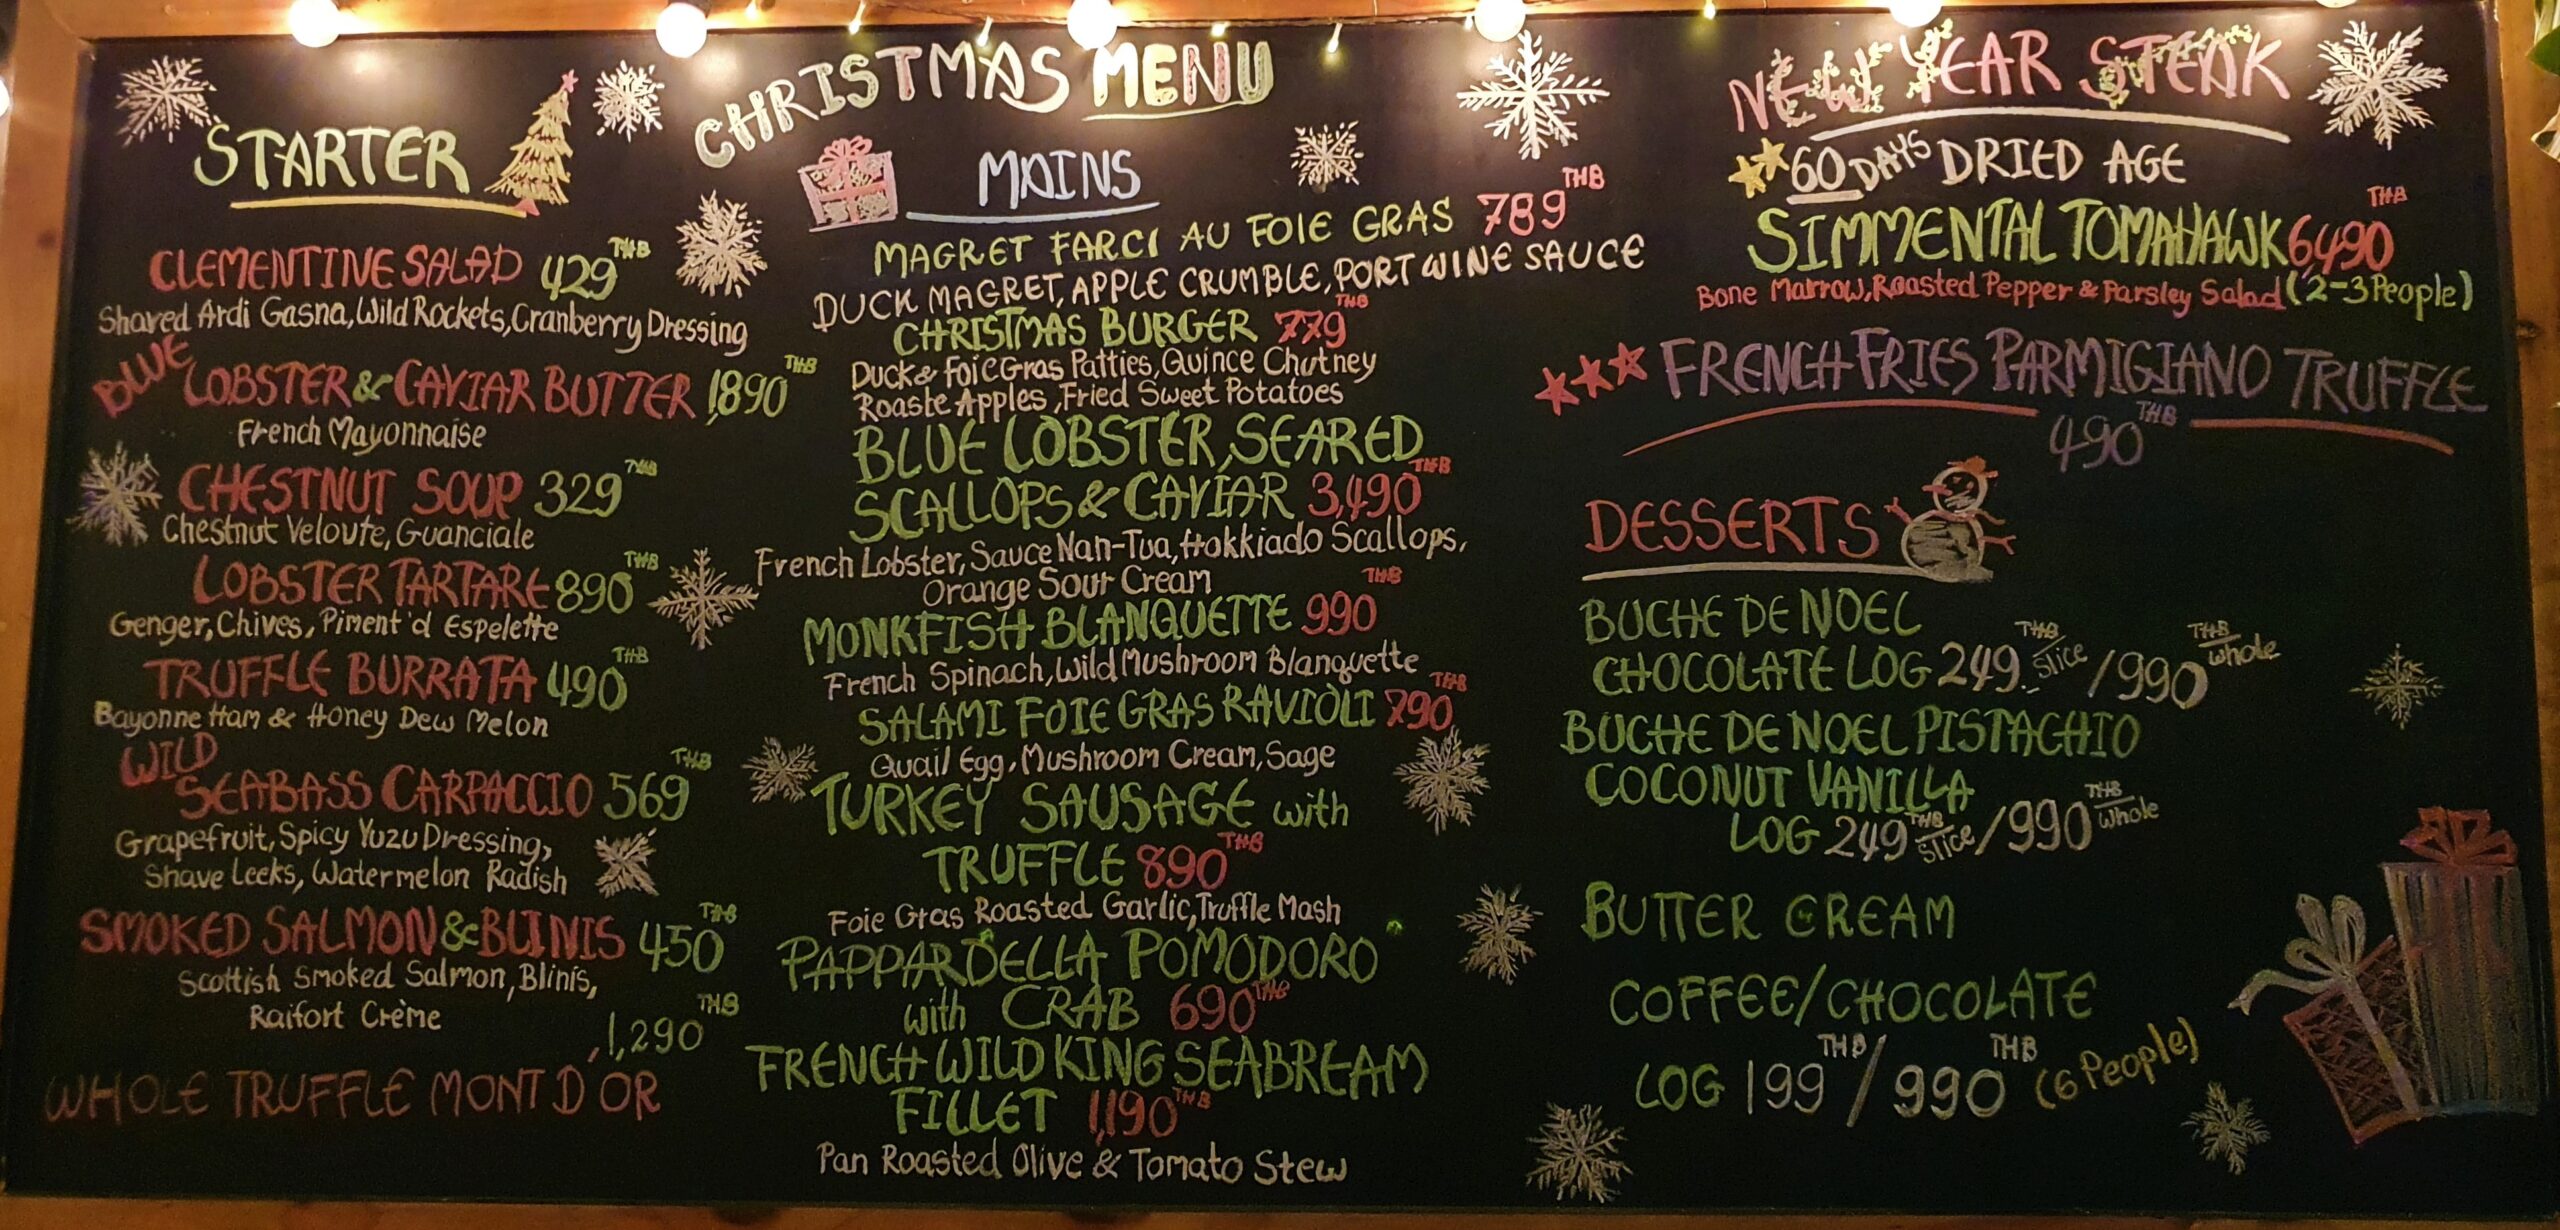 CHRISTMAS MENU
STARTER
CLEMENTINE SALAD 429 THB
Shaved Ardi Gasna, Wild Rockets, Cranberry Dressing
BLUE
LOBSTER & CAVIAR BUTTER 1,890 THB
French Mayonnaise
CHESTNUT SOUP 329 THB
Chestnut Veloute, Guanciale
LOBSTER TARTARE 890 THB
Genger, Chives, Piment'd Espelette
TRUFFLE BURRATA 490 THB
Bayonne Ham & Honey Dew Melon
WILD
SEABASS CARPACCIO 569 THB
Grapefruit, Spicy Yuzu Dressing,
Shave Leeks, Watermelon Radish
SMOKED SALMON & BLINIS 450 THB
Scottish Smoked Salmon, Blinis,
Raifort Crème
1,290 THB
WHOLE TRUFFLE MONT D'OR
MAINS
MAGRET FARCI AU FOIE GRAS 789 THB
DUCK MAGRET, APPLE CRUMBLE, PORT WINE SAUCE
CHRISTMAS BURGER 779 THB
Duck & Foie Gras Patties, Quince Chutney
Roaste Apples, Fried Sweet Potatoes
BLUE LOBSTER, SEARED
SCALLOPS & CAVIAR 3,490 THB
French Lobster, Sauce Nan-Tua, Hokkiado Scallops,
Orange Sour Cream
MONKFISH BLANQUETTE 990 THB
French Spinach, Wild Mushroom Blanquette
SALAMI FOIE GRAS RAVIOLI 790 THB
Quail Egg, Mushroom Cream, Sage
TURKEY SAUSAGE with
TRUFFLE 890 THB
Foie Gras Roasted Garlic, Truffle Mash
PAPPARDELLA POMODORO
with CRAB 690 THB
FRENCH WILD KING SEABREAM
FILLET 1,190 THB
Pan Roasted Olive & Tomato Stew
NEW YEAR STEAK
60 DAYS DRIED AGE
SIMMENTAL TOMAHAWK 6490 THB
Bone Marrow, Roasted Pepper & Parsley Salad (2-3 People)
FRENCH FRIES PARMIGIANO TRUFFLE
490 THB
DESSERTS
BUCHE DE NOEL
CHOCOLATE LOG 249 THB slice / 990 THB whole
BUCHE DE NOEL PISTACHIO
COCONUT VANILLA
LOG 249 THB slice / 990 THB whole
BUTTER CREAM
COFFEE/CHOCOLATE
LOG 199 THB / 990 THB (6 People)